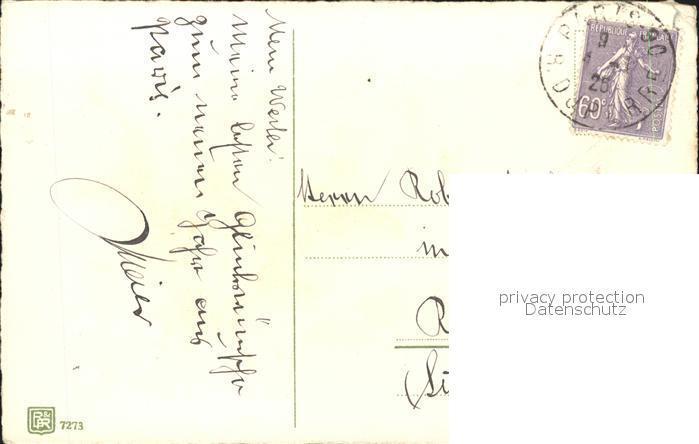 Mein Werter!
Meine besten Glückwünsche
zum neuen Jahr aus
Paris.
Meier
Herrn Rob
in
R
(Si
PARIS
REPUBLIQUE FRANÇAISE
60c
POSTES
25
privacy protection
Datenschutz
7273